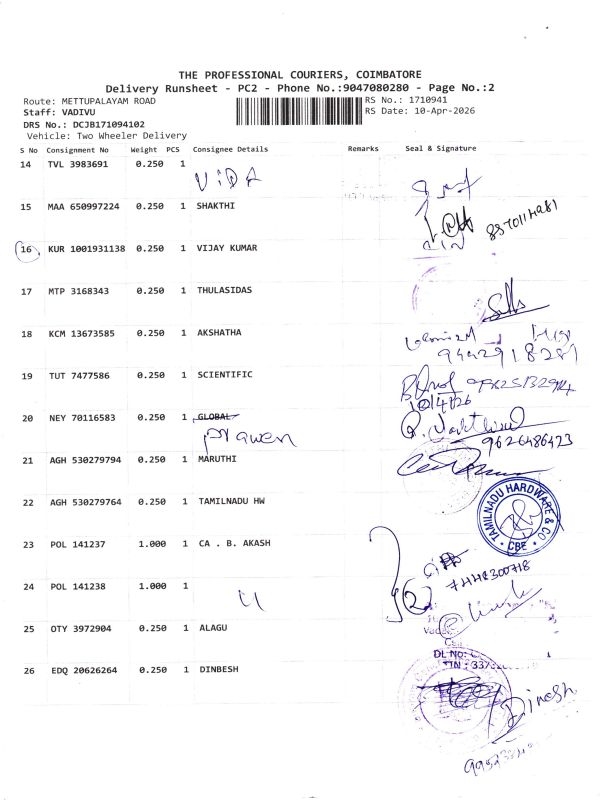 THE PROFESSIONAL COURIERS, COIMBATORE
Delivery Runsheet - PC2 - Phone No.:9047080280 - Page No.:2
Route: METTUPALAYAM ROAD
RS No.: 1710941
Staff: VADIVU
RS Date: 10-Apr-2026
DRS No.: DCJB171094102
Vehicle: Two Wheeler Delivery
S No Consignment No Weight PCS Consignee Details Remarks Seal & Signature
14 TVL 3983691 0.250 1
ViDA
15 MAA 650997224 0.250 1 SHAKTHI
16 KUR 1001931138 0.250 1 VIJAY KUMAR
17 MTP 3168343 0.250 1 THULASIDAS
18 KCM 13673585 0.250 1 AKSHATHA
19 TUT 7477586 0.250 1 SCIENTIFIC
10/4/26
20 NEY 70116583 0.250 1 GLOBAL
Prawen
9626486423
21 AGH 530279794 0.250 1 MARUTHI
22 AGH 530279764 0.250 1 TAMILNADU HW
TAMILNADU HARDWARE & CO
CBE
23 POL 141237 1.000 1 CA . B. AKASH
24 POL 141238 1.000 1
2
25 OTY 3972904 0.250 1 ALAGU
DL No:
26 EDQ 20626264 0.250 1 DINBESH
Dinesh